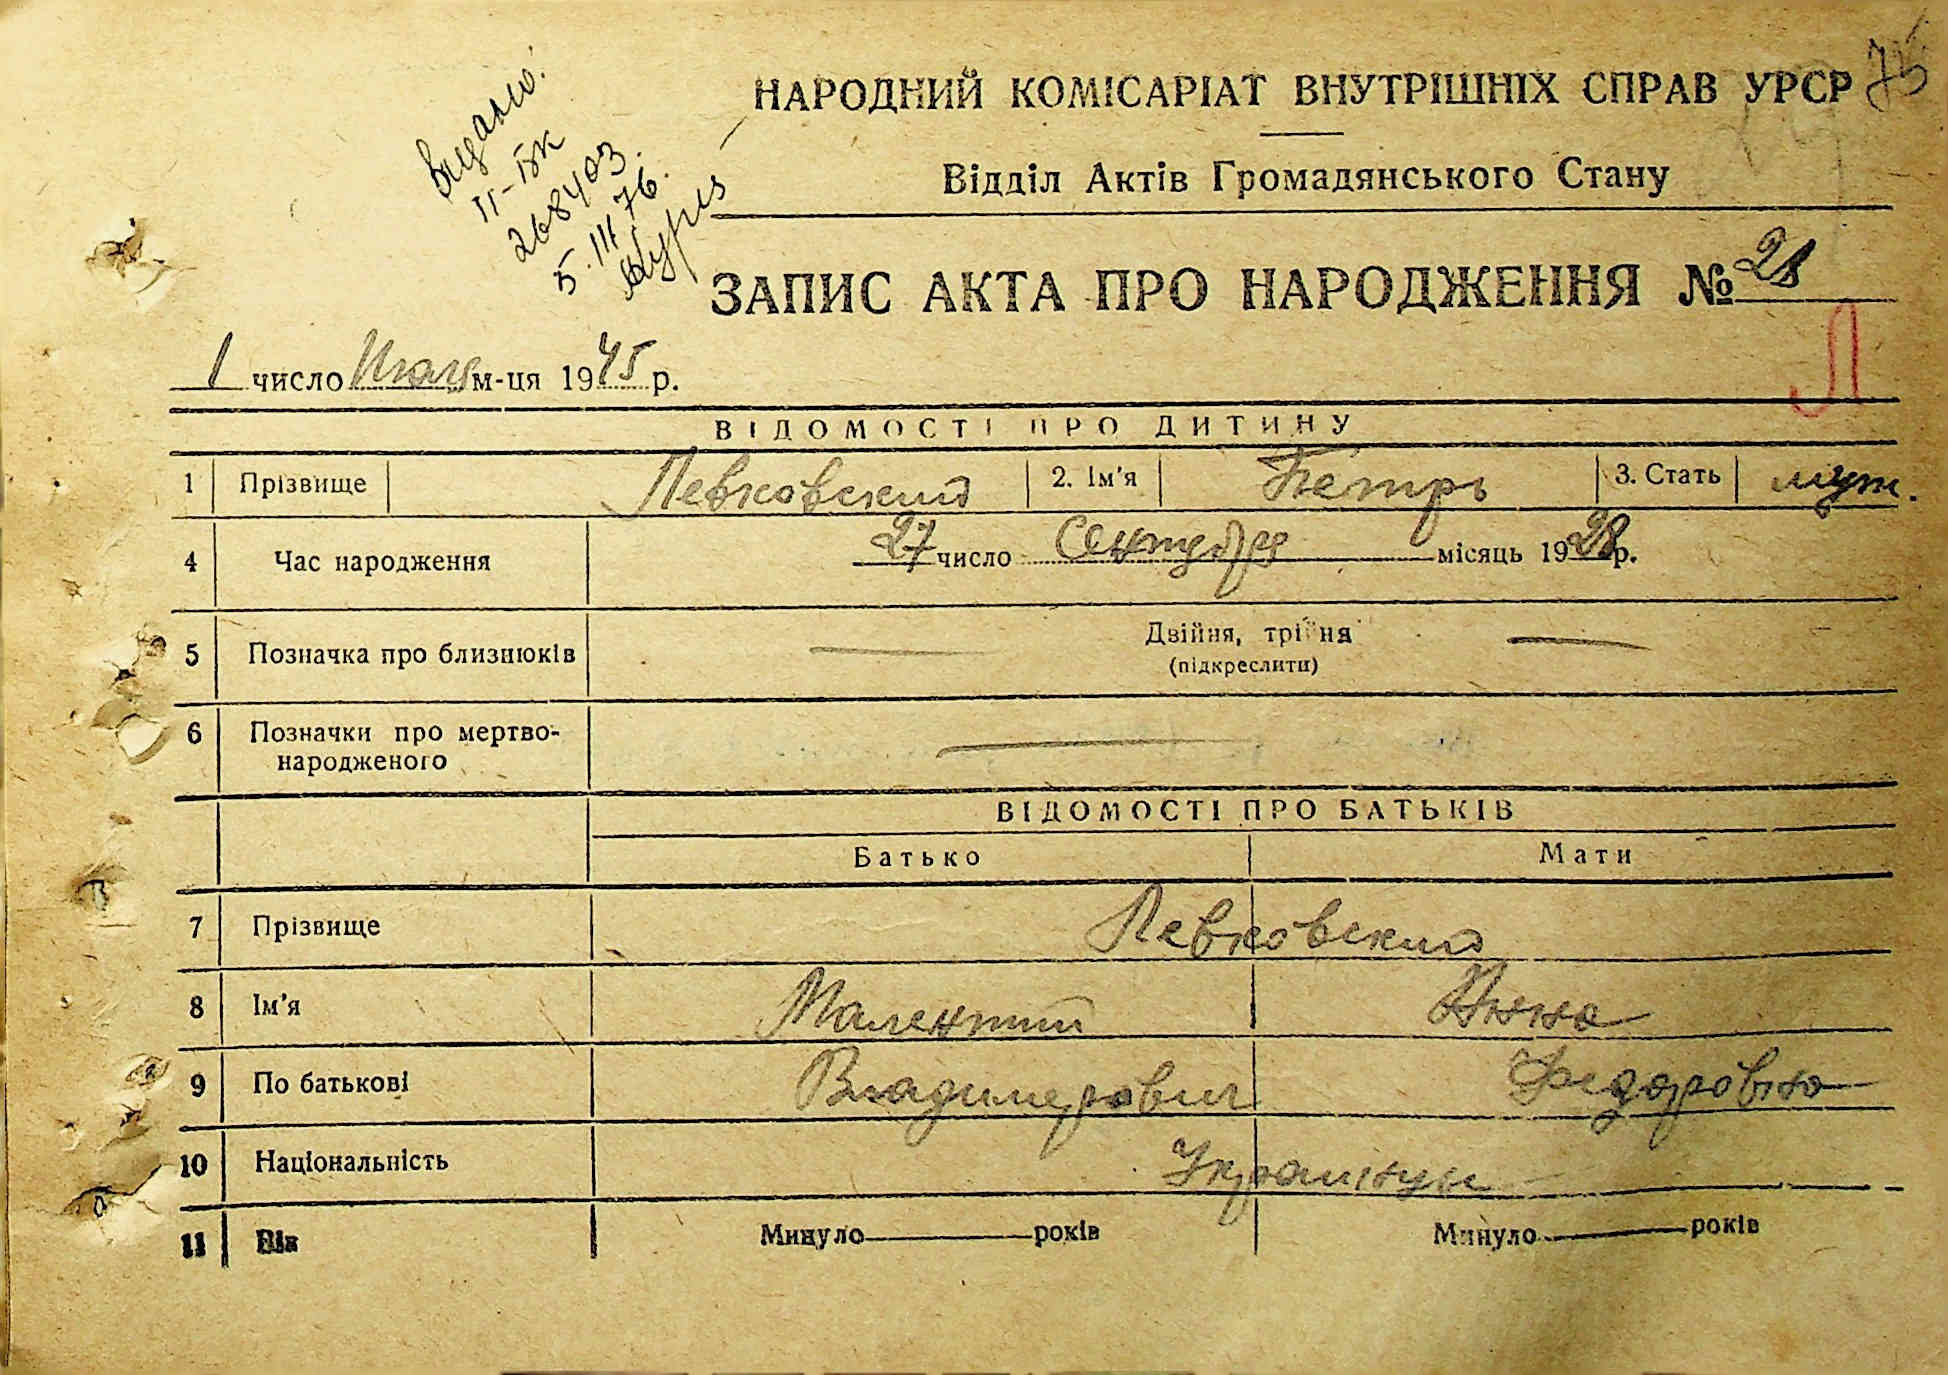 75
НАРОДНИЙ КОМІСАРІАТ ВНУТРІШНІХ СПРАВ УРСР
Видано.
ІІ-БК
268403.
5.ІІІ 76.
Відділ Актів Громадянського Стану
ЗАПИС АКТА ПРО НАРОДЖЕННЯ № 28
Л
1 число Июля м-ця 1945 р.
ВІДОМОСТІ ПРО ДИТИНУ
1 Прізвище Левковский 2. Ім'я Петрь 3. Стать муж.
4 Час народження 27 число Сентября місяць 1928 р.
5 Позначка про близнюків — Двійня, трійня —
(підкреслити)
6 Позначки про мертво-
народженого —
ВІДОМОСТІ ПРО БАТЬКІВ
Батько Мати
7 Прізвище Левковский
8 Ім'я Малентий Анна
9 По батькові Владимерович Федоровна
10 Національність Украинцы
11 Вік Минуло років Минуло років